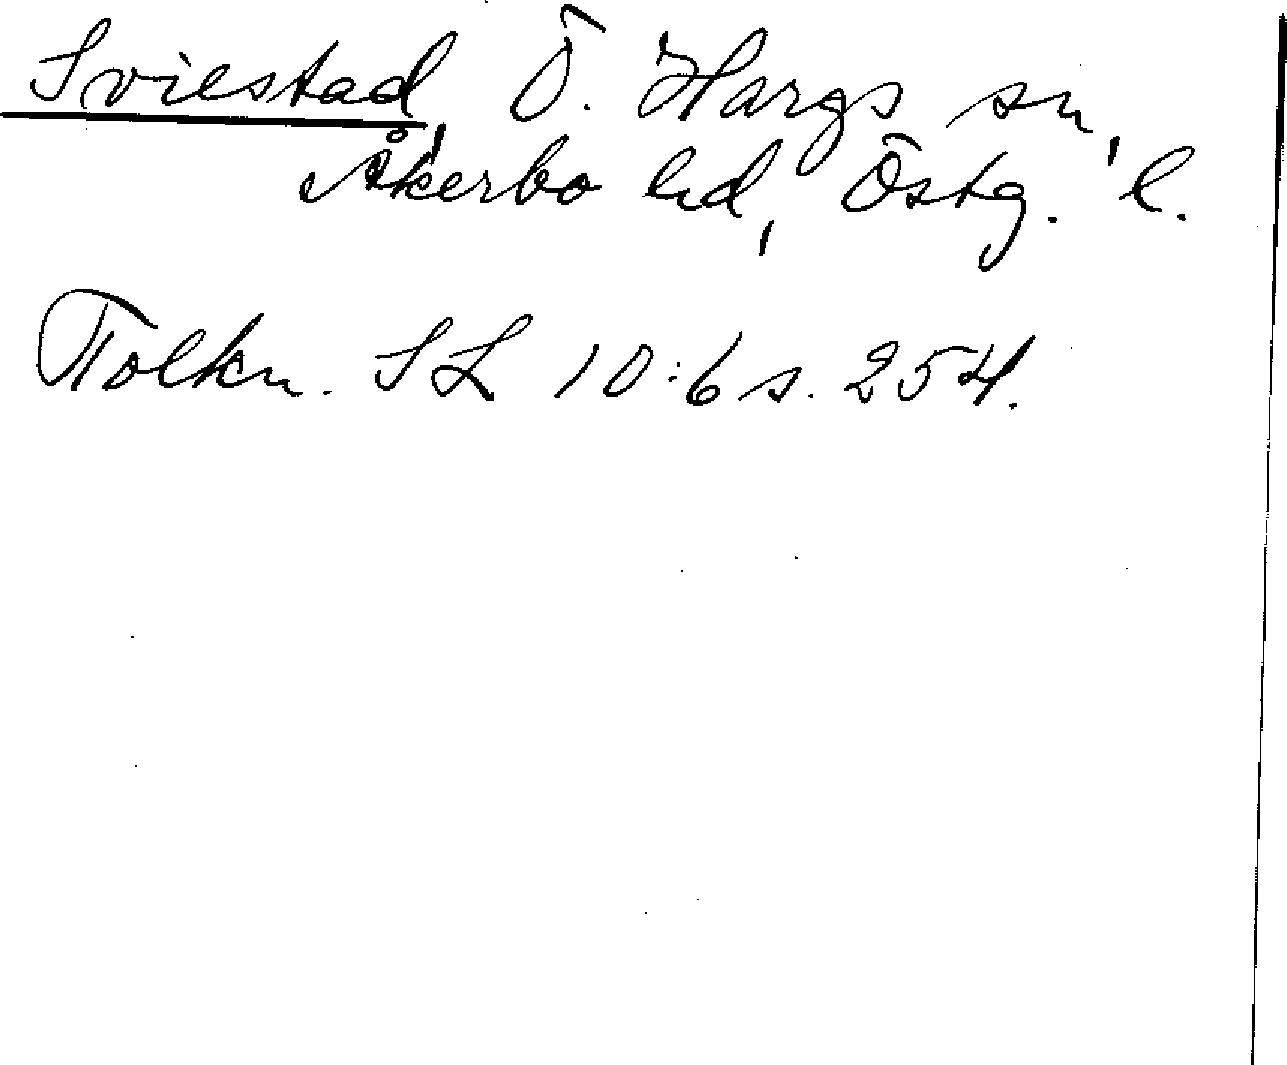 Sviestad, Ö. Hargs sn,
Åkerbo hd, Östg. l.
Tolkn. SL 10:6 s. 254.